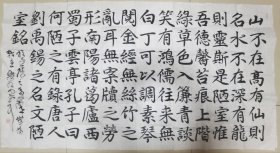 山不在高有仙則
名水不在深有龍
則靈斯是陋室惟
吾德馨苔痕上階
綠草色入簾青談
笑有鴻儒往來無
白丁可以調素琴
閱金經無絲竹之
亂耳無案牘之勞
形南陽諸葛廬西
蜀子雲亭孔子曰
何陋之有錄唐人
劉禹錫之名文陋
室銘